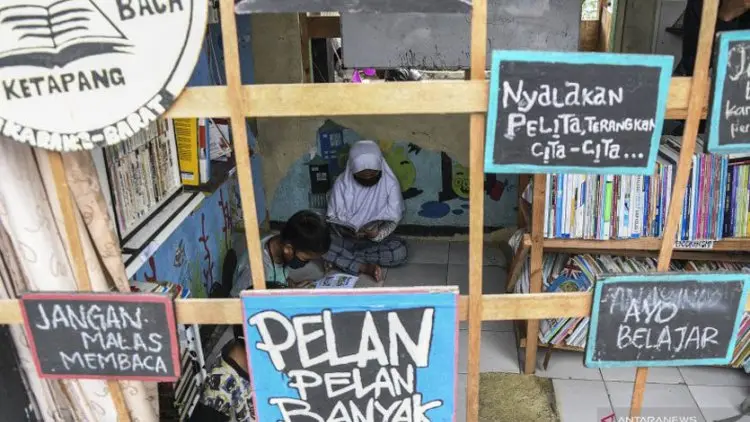 BACA
KETAPANG
KARAKSI-BARAT
NYALAKAN
PELITA, TERANGKAN
CITA-CITA...
JANGAN
MALAS
MEMBACA
PELAN
PELAN
BANYAK
AYO
BELAJAR
ANTARANEWS